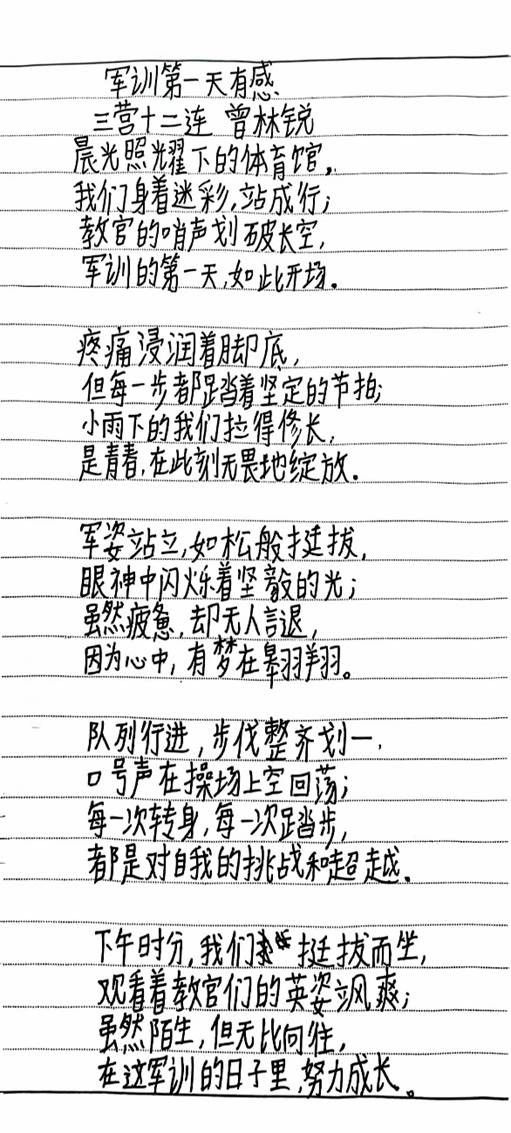 军训第一天有感
三营十二连 曾林锐
晨光照耀下的体育馆，
我们身着迷彩，站成行；
教官的哨声划破长空，
军训的第一天，如此开场。
疼痛浸润着脚底，
但每一步都踏着坚定的节拍；
小雨下的我们拉得修长，
是青春，在此刻无畏地绽放。
军姿站立，如松般挺拔，
眼神中闪烁着坚毅的光；
虽然疲惫，却无人言退，
因为心中，有梦在翱翔。
队列行进，步伐整齐划一，
口号声在操场上空回荡；
每一次转身，每一次踏步，
都是对自我的挑战和超越。
下午时分，我们挺拔而坐，
观看着教官们的英姿飒爽；
虽然陌生，但无比向往，
在这军训的日子里，努力成长。